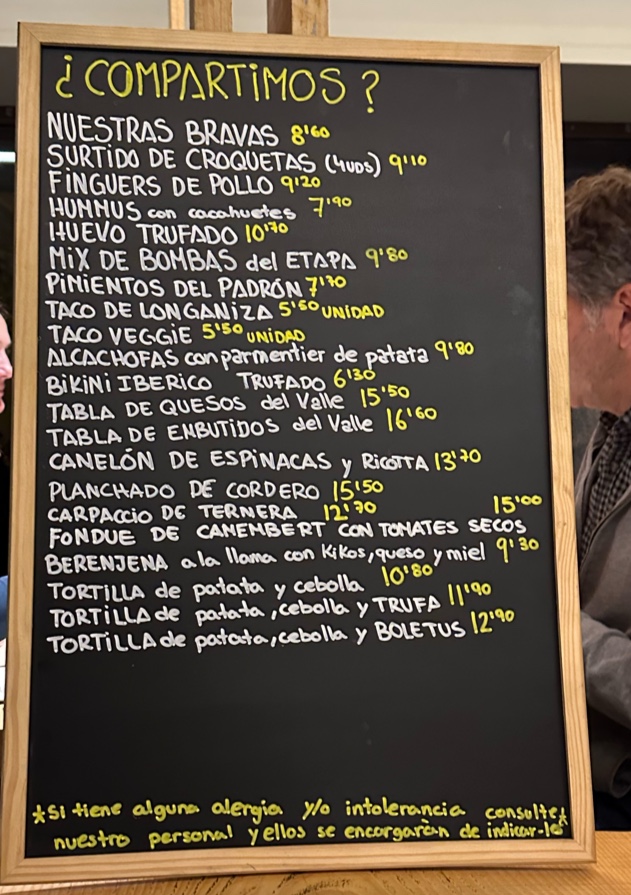 ¿COMPARTIMOS?
NUESTRAS BRAVAS 8'60
SURTIDO DE CROQUETAS (4UDS) 9'10
FINGUERS DE POLLO 9'20
HUMMUS con cacahuetes 7'90
HUEVO TRUFADO 10'70
MIX DE BOMBAS del ETAPA 9'80
PIMIENTOS DEL PADRÓN 7'70
TACO DE LONGANIZA 5'50 UNIDAD
TACO VEGGIE 5'50 UNIDAD
ALCACHOFAS con parmentier de patata 9'80
BIKINI IBERICO TRUFADO 6'30
TABLA DE QUESOS del Valle 15'50
TABLA DE EMBUTIDOS del Valle 16'60
CANELÓN DE ESPINACAS y RICOTTA 13'70
PLANCHADO DE CORDERO 15'50
CARPACCIO DE TERNERA 12'70
FONDUE DE CAMEMBERT CON TOMATES SECOS 15'00
BERENJENA a la llama con Kikos, queso y miel 9'30
TORTILLA de patata y cebolla 10'80
TORTILLA de patata, cebolla y TRUFA 11'90
TORTILLA de patata, cebolla y BOLETUS 12'90
*Si tiene alguna alergia y/o intolerancia consulte
nuestro personal y ellos se encargarán de indicar-les